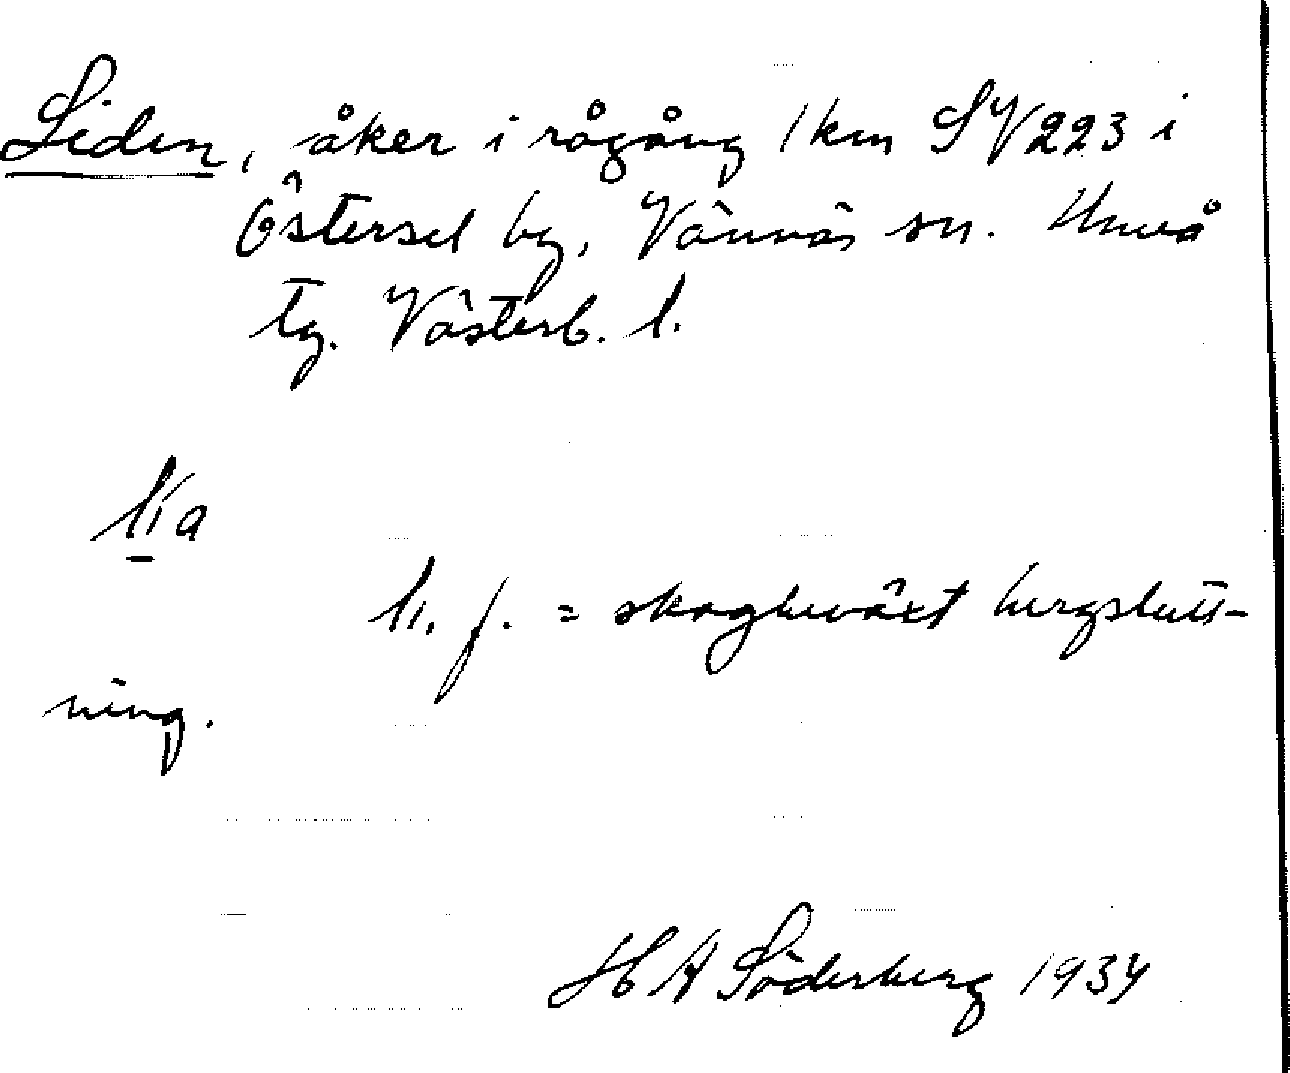 Liden, åker i rågång 1 km SV 223 i
Östersel by, Vännäs sn. Umeå
tg. Västerb. l.
lia
li. f. = skogbeväxt bergslutt-
ning.
H A Söderberg 1934